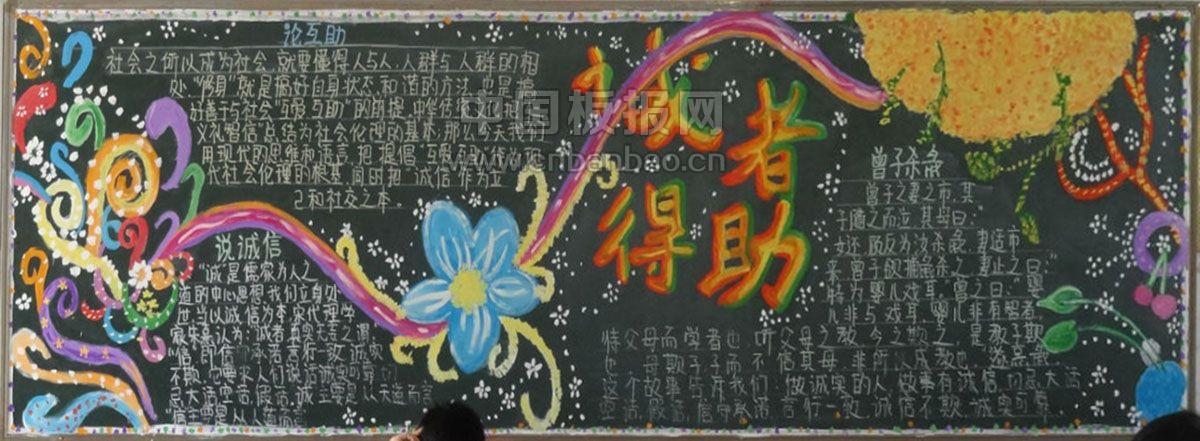 论互助
社会之所以成为社会、就要懂得人与人、人群与人群的相
处、"修身"就是搞好自身状态和谐的方法、也是搞
好善于与社会"互爱互助"的前提、中华传
义礼智信总结为社会伦理的基本、那么今天我们
用现代的思维和语言、把提倡"互爱互助"作为
代社会伦理的根基、同时把"诚信"作为立
己和社交之本。
说诚信
"诚是儒家为人之
道的中心思想、我们立身处
世、当以诚信为本。宋代理学
家朱熹认为:"诚者、真实无妄之谓。"
"信"即信
不欺、也要求人们说话诚实可靠、切
忌大话、空话、假话、诚主要是从天道而言
信主要是从人道而言
诚者
得助
曾子杀彘
曾子之妻之市、其
子随之而泣、其母曰:
"女还、顾反为汝杀彘"妻适市
来、曾子欲捕彘杀之、妻止之曰:"
特为婴儿戏耳。"曾子曰:"婴
儿非与戏耳。婴儿非有知者
待父母而学者也、听父母之教。今子欺之、是教子欺
也。母欺子、子而不信其母、非所以成教也。"遂烹彘
这个故事告诉我们、做诚实的人、做事有诚信、切忌大话
空话、假话、信守承诺、言行一致、诚信不欺、诚实可靠。
中国板报网
www.cnbanbao.cn